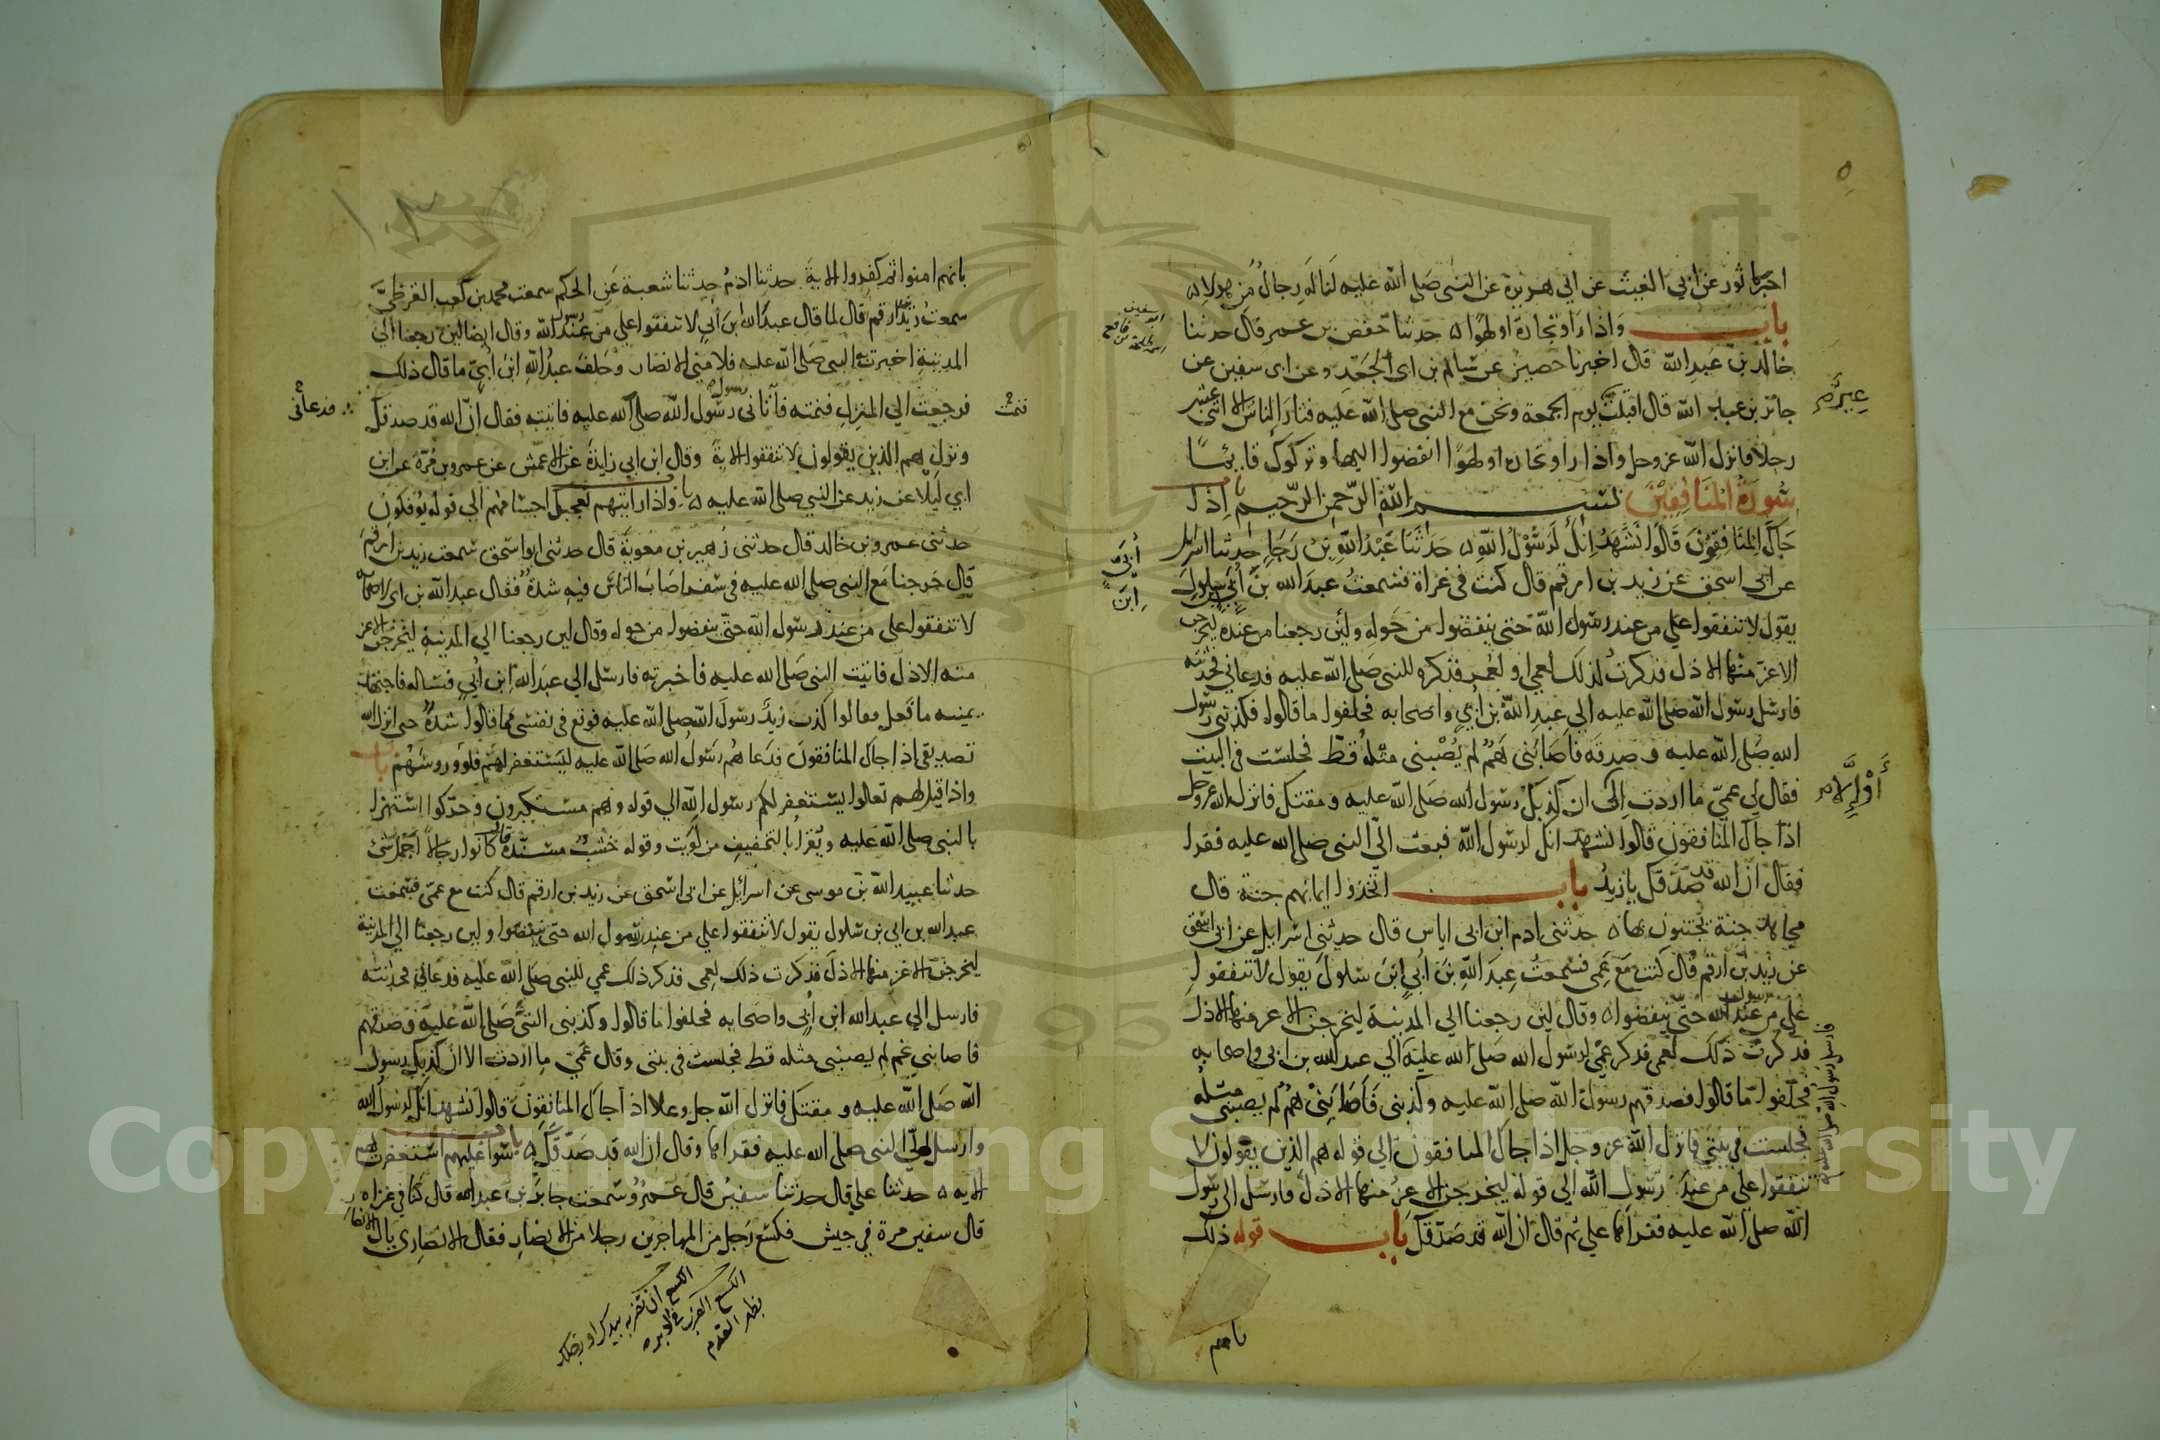 اخبرنا ثور عن ابي الغيث عن ابي هريرة عن النبي صلى الله عليه لناله رجال من هولاء
باب واذا راوا تجارة او لهوا حدثنا حفص بن عمر قال حدثنا
خالد بن عبد الله قال اخبرنا حصين عن سالم بن ابي الجعد وعن ابي سفين عن
جابر بن عبد الله قال اقبلت عير يوم الجمعة ونحن مع النبي صلى الله عليه فثار الناس الا اثنى عشر
رجلا فانزل الله عز وجل واذا راوا تجارة او لهوا انفضوا اليها وتركوك قائما
سورة المنافقين بسم الله الرحمن الرحيم باب اذا
جاك المنافقون قالوا نشهد انك لرسول الله حدثنا عبد الله بن رجا حدثنا اسرائيل
عن ابي اسحق عن زيد بن ارقم قال كنت في غزاة فسمعت عبد الله بن أبي بن سلول
يقول لا تنفقوا علي من عند رسول الله حتى ينفضوا من حوله ولئن رجعنا من عنده ليخرجن
الاعز منها الاذل فذكرت ذلك لعمي او لعمر فذكره للنبي صلى الله عليه فدعاني فحدثته
فارسل رسول الله صلى الله عليه الي عبد الله بن أبي واصحابه فحلفوا ما قالوا فكذبني رسول
الله صلى الله عليه وصدقه فاصابني هم لم يصبني مثله قط فجلست في البيت
فقال لي عمي ما اردت الى ان كذبك رسول الله صلى الله عليه ومقتك فانزل الله عز وجل
اذا جاك المنافقون قالوا نشهد انك لرسول الله فبعث الي النبي صلى الله عليه فقرا
فقال ان الله قد صدقك يا زيد باب اتخذوا ايمانهم جنة قال
مجاهد جنة يجتنون بها حدثني ادم ابن ابي اياس قال حدثني اسرايل عن ابي اسحق
عن زيد بن ارقم قال كنت مع عمي فسمعت عبد الله بن أبي ابن سلول يقول لا تنفقوا
علي من عند رسول الله حتى ينفضوا وقال لين رجعنا الي المدينة ليخرجن الاعز منها الاذل
فذكرت ذلك لعمي فذكر عمي لرسول الله صلى الله عليه الي عبد الله بن ابي واصحابه
فحلفوا ما قالوا فصدقهم رسول الله صلى الله عليه وكذبني فاصابني هم لم يصبني مثله
فجلست في بيتي فانزل الله عز وجل اذا جاك المنافقون الي قوله هم الذين يقولون لا
تنفقوا علي من عند رسول الله الي قوله ليخرجن الاعز منها الاذل فارسل الي رسول
الله صلى الله عليه فقراها علي ثم قال ان الله قد صدقك باب قوله ذلك
بانهم
عير
أبي
ابن
فارسل رسول الله صلى الله عليه
بانهم امنوا ثم كفروا الاية حدثنا ادم حدثنا شعبة عن الحكم سمعت محمد بن كعب القرظي
سمعت زيد بن ارقم قال لما قال عبد الله بن ابي لا تنفقوا علي من عند رسول الله وقال ايضا لين رجعنا الي
المدينة اخبرت النبي صلى الله عليه فلامني الانصار وحلف عبد الله ابن أبي ما قال ذلك
فرجعت الي المنزل فنمته فاتاني رسول رسول الله صلى الله عليه فاتيته فقال ان الله قد صدقك
ونزل هم الذين يقولون لا تنفقوا الاية وقال ابن ابي زايدة عن الاعمش عن عمرو بن مرة عن ابن
ابي ليلا عن زيد عن النبي صلى الله عليه باب واذا رايتهم تعجبك اجسامهم الي قوله يوفكون
حدثني عمرو بن خالد قال حدثني زهير بن معوية قال حدثني ابو اسحق سمعت زيد بن ارقم
قال خرجنا مع النبي صلى الله عليه في سفر اصاب الناس فيه شدة فقال عبد الله بن ابي لاصحابه
لا تنفقوا علي من عند رسول الله حتى ينفضوا من حوله وقال لين رجعنا الي المدينة ليخرجن الاعز
منها الاذل فاتيت النبي صلى الله عليه فاخبرته فارسل الي عبد الله ابن أبي فساله فاجتهد
يمينه ما فعل وقالوا كذب زيد رسول الله صلى الله عليه فوقع في نفسي مما قالوا شدة حتى انزل الله
تصديقي اذا جاك المنافقون فدعاهم رسول الله صلى الله عليه ليستغفر لهم فلووا روسهم باب
واذا قيل لهم تعالوا يستغفر لكم رسول الله الي قوله وهم مستكبرون وحركوا استهزا
بالنبي صلى الله عليه ويقرا بالتخفيف من لويت وقوله خشب مسندة قال كانوا رجالا اجمل شي
حدثنا عبيد الله بن موسى عن اسرائيل عن ابي اسحق عن زيد بن ارقم قال كنت مع عمي فسمعت
عبد الله بن ابي بن سلول يقول لا تنفقوا علي من عند رسول الله حتى ينفضوا ولين رجعنا الي المدينة
ليخرجن الاعز منها الاذل فذكرت ذلك لعمي فذكر ذلك عمي للنبي صلى الله عليه فدعاني فحدثته
فارسل الي عبد الله ابن أبي واصحابه فحلفوا ما قالوا وكذبني النبي صلى الله عليه وصدقهم
فاصابني غم لم يصبني مثله قط فجلست في بيتي وقال عمي ما اردت الا ان كذبك رسول
الله صلى الله عليه ومقتك فانزل الله جل وعلا اذا جاك المنافقون قالوا نشهد انك لرسول الله
وارسل الي النبي صلى الله عليه فقراها وقال ان الله قد صدقك باب سوا عليهم استغفرت لهم
الاية حدثنا علي قال حدثنا سفين قال عمرو سمعت جابر بن عبد الله قال كنا في غزاة
قال سفين مرة في جيش فكسع رجل من المهاجرين رجلا من الانصار فقال الانصاري يال الانصار
فنمت
فدعاني
الكسع ان تضربه بيدك او برجلك
Copyright © King Saud University
195